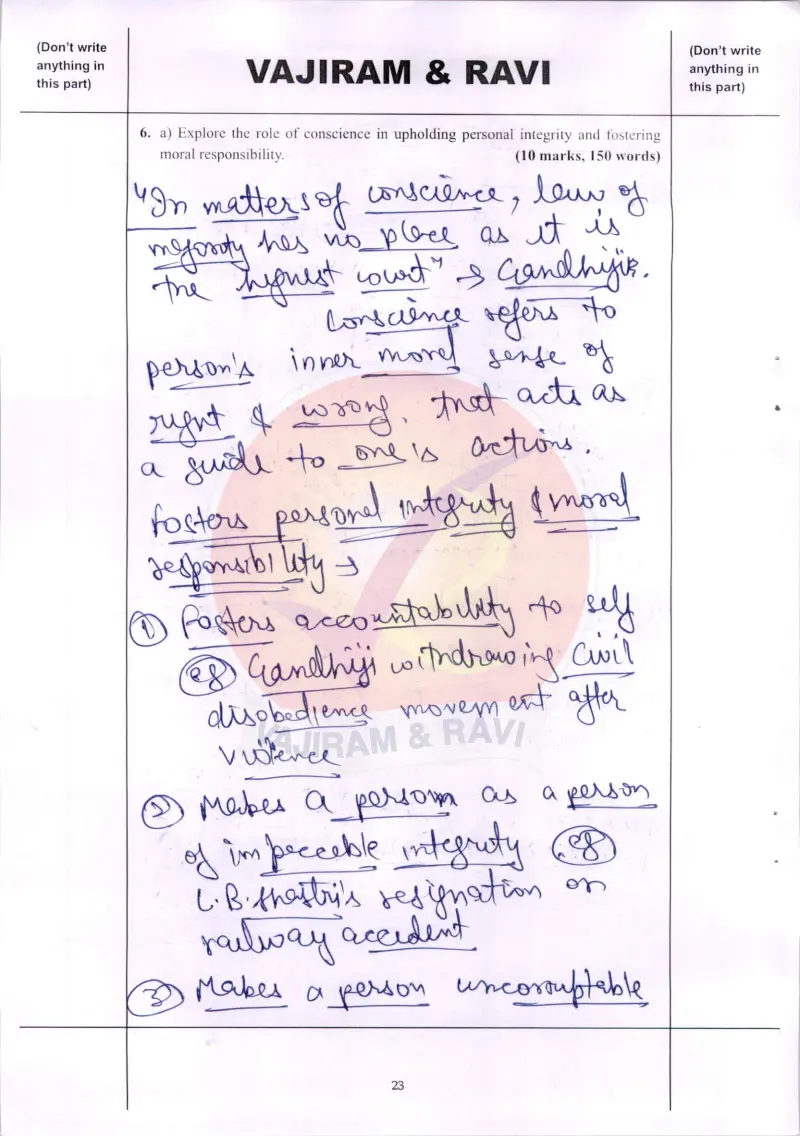 (Don't write
anything in
this part)
VAJIRAM & RAVI
(Don't write
anything in
this part)
6. a) Explore the role of conscience in upholding personal integrity and fostering
moral responsibility. (10 marks, 150 words)
"In matters of conscience, law of
majority has no place as it is
the highest court" → Gandhiji
Conscience refers to
person's inner moral sense of
right & wrong, that acts as
a guide to one's actions.
fosters personal integrity & moral
responsibility →
① Fosters accountability to self
eg Gandhiji withdrawing Civil
disobedience movement after
violence
VAJIRAM & RAVI
② Makes a person as a person
of impeccable integrity eg
L.B. Shastri's resignation on
railway accident
③ Makes a person uncorruptable
23